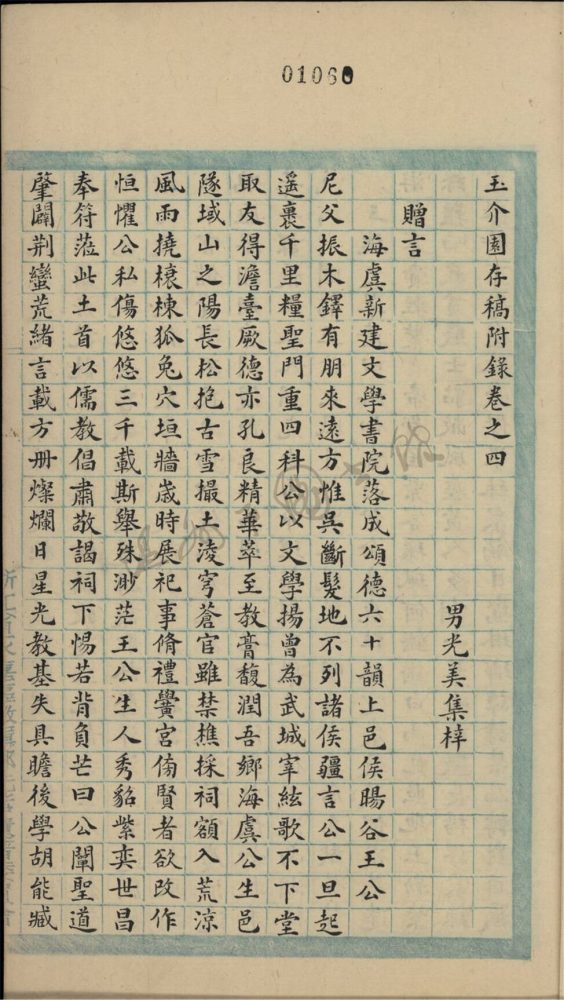 01060
玉介園存稿附錄卷之四
男光美集梓
贈言
海虞新建文學書院落成頌德六十韻上邑侯暘谷王公
尼父振木鐸有朋來遠方惟吳斷髮地不列諸侯疆言公一旦起
遥裹千里糧聖門重四科公以文學揚曾為武城宰絃歌不下堂
取友得澹臺厥德亦孔良精華萃至教膏馥潤吾鄉海虞公生邑
隧域山之陽長松抱古雪撮土淩穹蒼官雖禁樵採祠額入荒涼
風雨撓榱棟狐兔穴垣牆歲時展祀事脩禮黌宮傍賢者欲改作
恒懼公私傷悠悠三千載斯舉殊渺茫王公生人秀貂紫奕世昌
奉符蒞此土首以儒教倡肅敬謁祠下惕若背負芒曰公闡聖道
肇闢荆蠻荒緒言載方册燦爛日星光教基失具瞻後學胡能臧